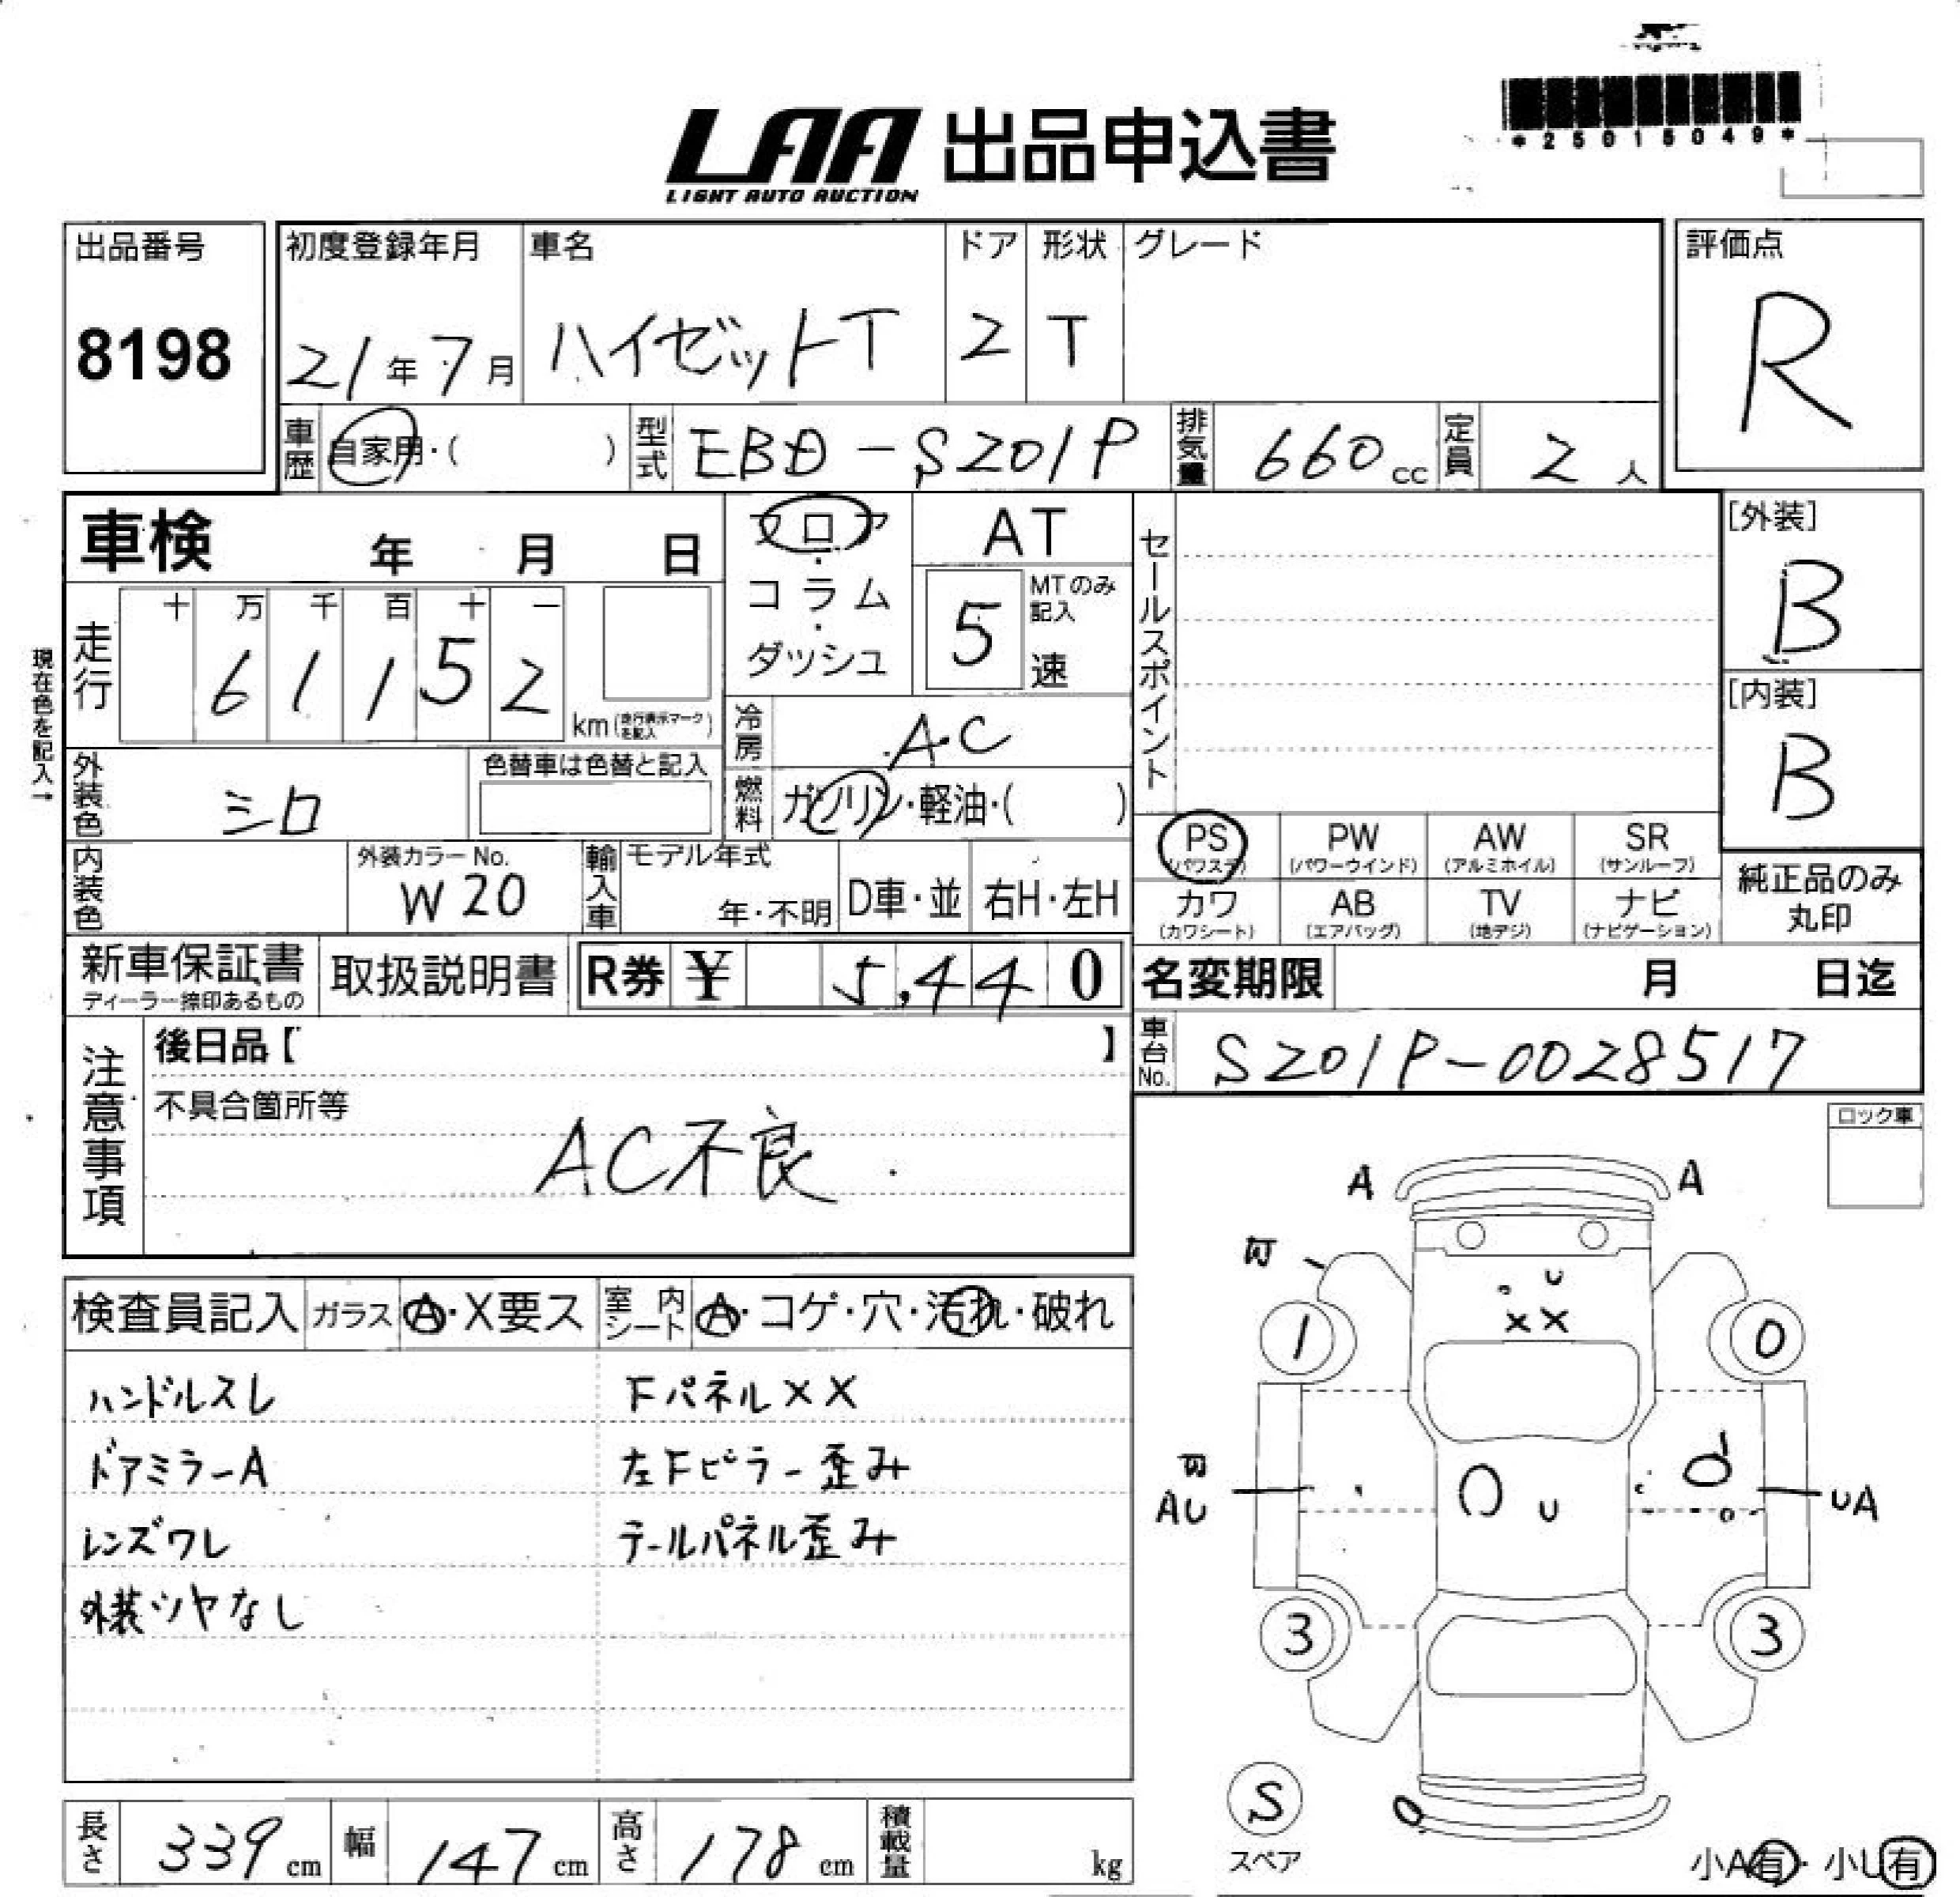 *25015049*
LAA 出品申込書
LIGHT AUTO AUCTION
出品番号 初度登録年月 車名 ドア 形状 グレード 評価点
8198 21年7月 ハイゼットT 2 T R
車歴 自家用・( ) 型式 EBD-S201P 排気量 660cc 定員 2人
車検 年 月 日 フロア・コラム・ダッシュ AT セールスポイント [外装]
B
走行 十 万 千 百 十 一 5 MTのみ記入 速
61152 km (走行表示マークを記入)
[内装]
B
現在色を記入→
冷房 A.C
外装色 シロ 色替車は色替と記入
燃料 ガソリン・軽油・( )
PS (パワステ) PW (パワーウインド) AW (アルミホイル) SR (サンルーフ)
内装色 外装カラーNo. W20 輸入車 モデル年式 年・不明 D車・並 右H・左H
カワ (カワシート) AB (エアバッグ) TV (地デジ) ナビ (ナビゲーション) 純正品のみ丸印
新車保証書 ディーラー捺印あるもの 取扱説明書 R券 ¥ 5,440 名変期限 月 日迄
注意事項 後日品【 】 車台No. S201P-0028517
不具合箇所等
AC不良
ロック車
A A
検査員記入 ガラス A・X要ス 室内シート A・コゲ・穴・汚れ・破れ
U
XX
1 0
ハンドルスレ FパネルXX
ドアミラーA 左Fピラー歪み
AU U UA
レンズワレ テールパネル歪み
外装ツヤなし
3 3
S
スペア
長さ 339cm 幅 147cm 高さ 178cm 積載量 kg
小A有・小U有